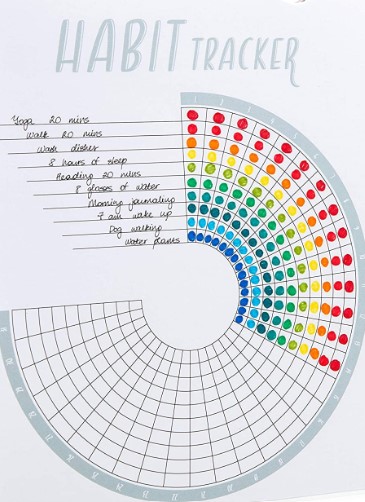 HABIT TRACKER
Yoga 20 mins
Walk 20 mins
Wash dishes
8 hours of sleep
Reading 20 mins
8 glasses of water
Morning journaling
7 am wake up
Dog walking
Water plants